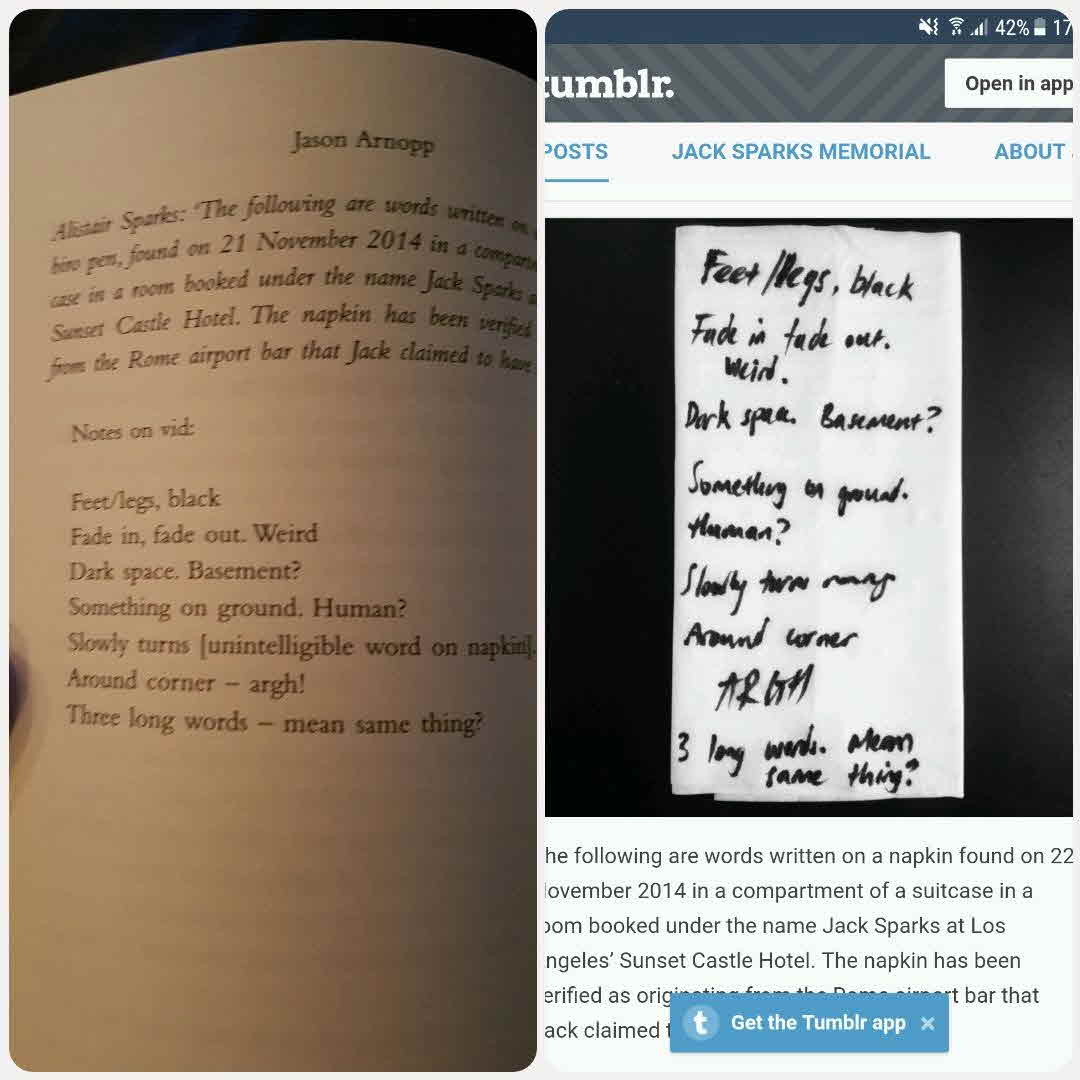 Jason Arnopp
Alistair Sparks: 'The following are words written on
biro pen, found on 21 November 2014 in a compart
case in a room booked under the name Jack Sparks a
Sunset Castle Hotel. The napkin has been verified
from the Rome airport bar that Jack claimed to have
Notes on vid:
Feet/legs, black
Fade in, fade out. Weird
Dark space. Basement?
Something on ground. Human?
Slowly turns [unintelligible word on napkin].
Around corner – argh!
Three long words – mean same thing?
42% 17
tumblr.
Open in app
POSTS JACK SPARKS MEMORIAL ABOUT
Feet/legs, black
Fade in fade out.
Weird.
Dark space. Basement?
Something on ground.
Human?
Slowly turns
Around corner
ARGH
3 long words. Mean
same thing?
he following are words written on a napkin found on 22
ovember 2014 in a compartment of a suitcase in a
oom booked under the name Jack Sparks at Los
ngeles' Sunset Castle Hotel. The napkin has been
erified as originating from the Rome airport bar that
ack claimed t
Get the Tumblr app ×